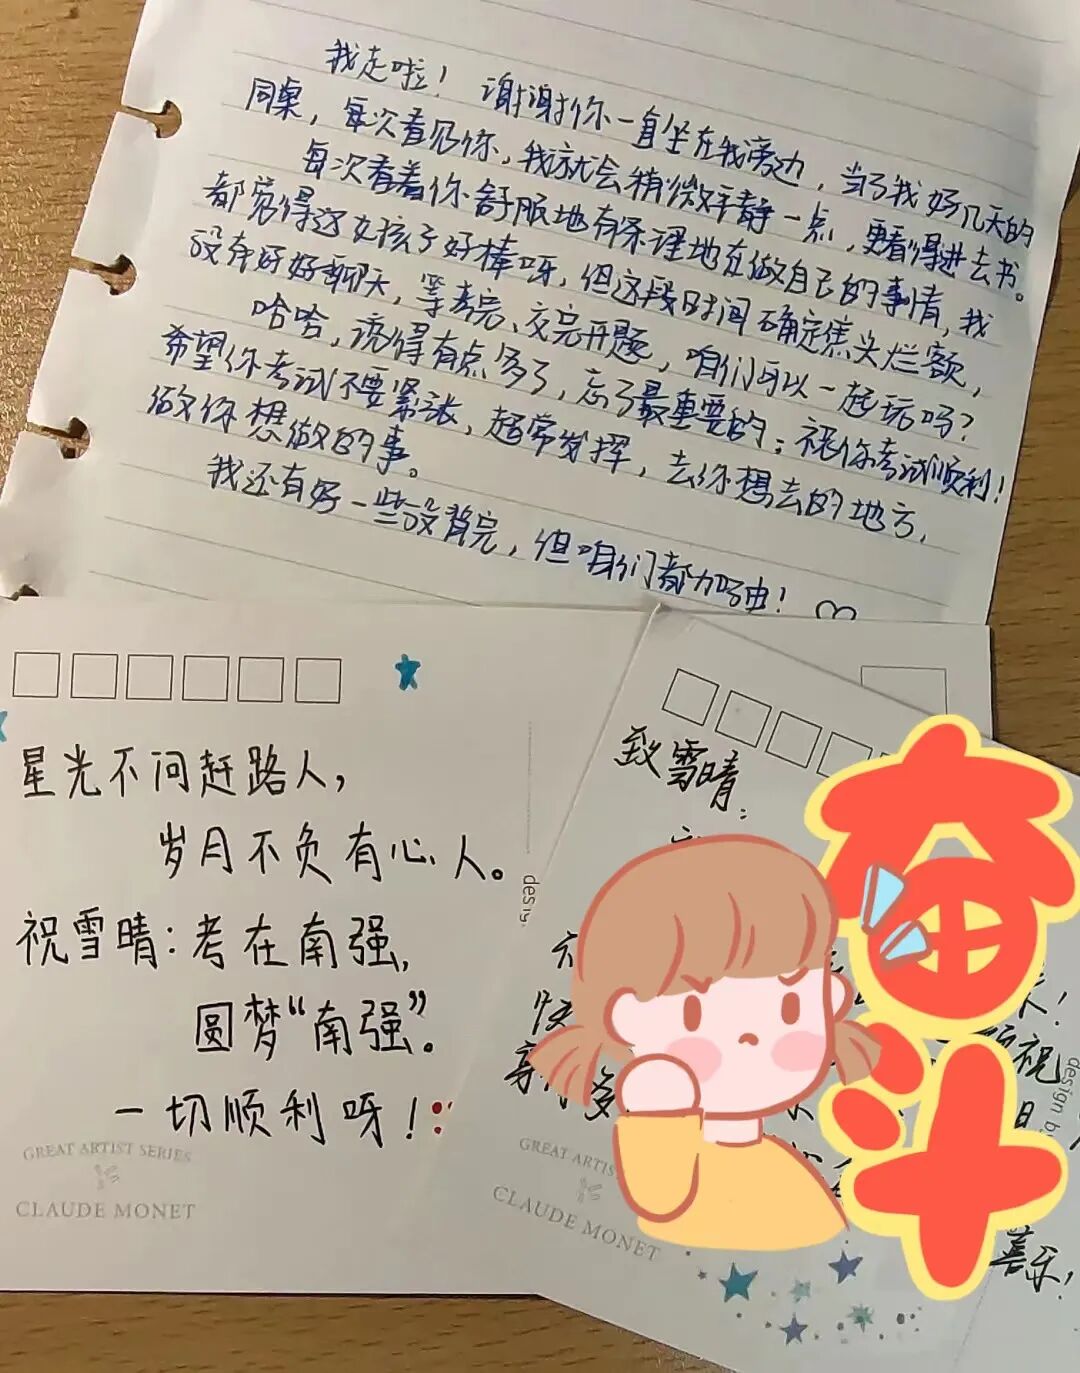 我走啦！谢谢你一直坐在我旁边，当了我好几天的
同桌，每次看见你，我就会稍微平静一点，更看得进去书。
每次看着你舒服地有条理地在做自己的事情，我
都觉得这女孩子好棒呀，但这段时间确定焦头烂额，
没有好好聊天，等考完、交完开题，咱们可以一起玩吗？
哈哈，说得有点多了，忘了最重要的：祝你考试顺利！
希望你考试不要紧张，超常发挥，去你想去的地方，
做你想做的事。
我还有好一些没背完，但咱们都加油！
星光不问赶路人，
岁月不负有心人。
祝雪晴：考在南强，
圆梦“南强”。
一切顺利呀！
GREAT ARTIST SERIES
CLAUDE MONET
致雪晴：
奋斗
祝
design b
喜乐！
GREAT ARTIS
CLAUDE MONET